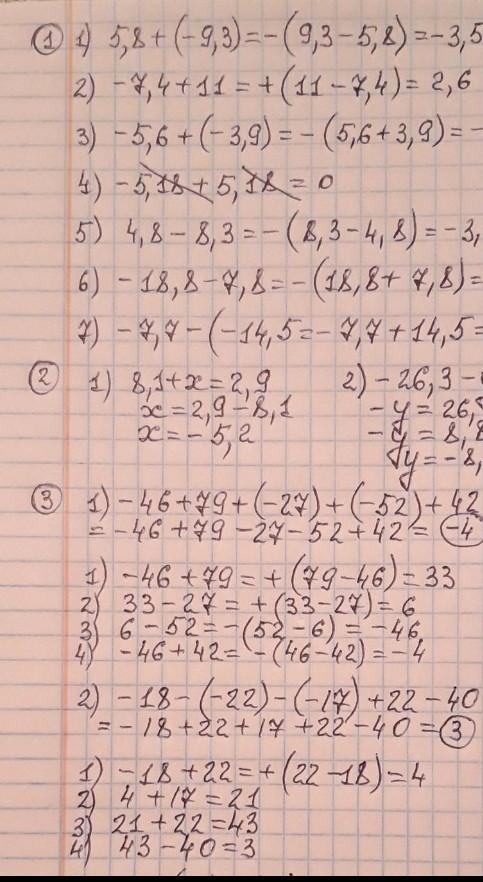 ① 1) 5,8 + (-9,3) = -(9,3 - 5,8) = -3,5
2) -7,4 + 11 = +(11 - 7,4) = 2,6
3) -5,6 + (-3,9) = -(5,6 + 3,9) = -
4) -5,18 + 5,18 = 0
5) 4,8 - 8,3 = -(8,3 - 4,8) = -3,
6) -18,8 - 7,8 = -(18,8 + 7,8) =
7) -7,7 - (-14,5 = -7,7 + 14,5 =
② 1) 8,1 + x = 2,9 2) -26,3 -
x = 2,9 - 8,1 -y = 26,
x = -5,2 -y = 8,8
y = -8,
③ 1) -46 + 79 + (-27) + (-52) + 42
= -46 + 79 - 27 - 52 + 42 = -4
1) -46 + 79 = +(79 - 46) = 33
2) 33 - 27 = +(33 - 27) = 6
3) 6 - 52 = -(52 - 6) = -46
4) -46 + 42 = -(46 - 42) = -4
2) -18 - (-22) - (-17) + 22 - 40
= -18 + 22 + 17 + 22 - 40 = 3
1) -18 + 22 = +(22 - 18) = 4
2) 4 + 17 = 21
3) 21 + 22 = 43
4) 43 - 40 = 3